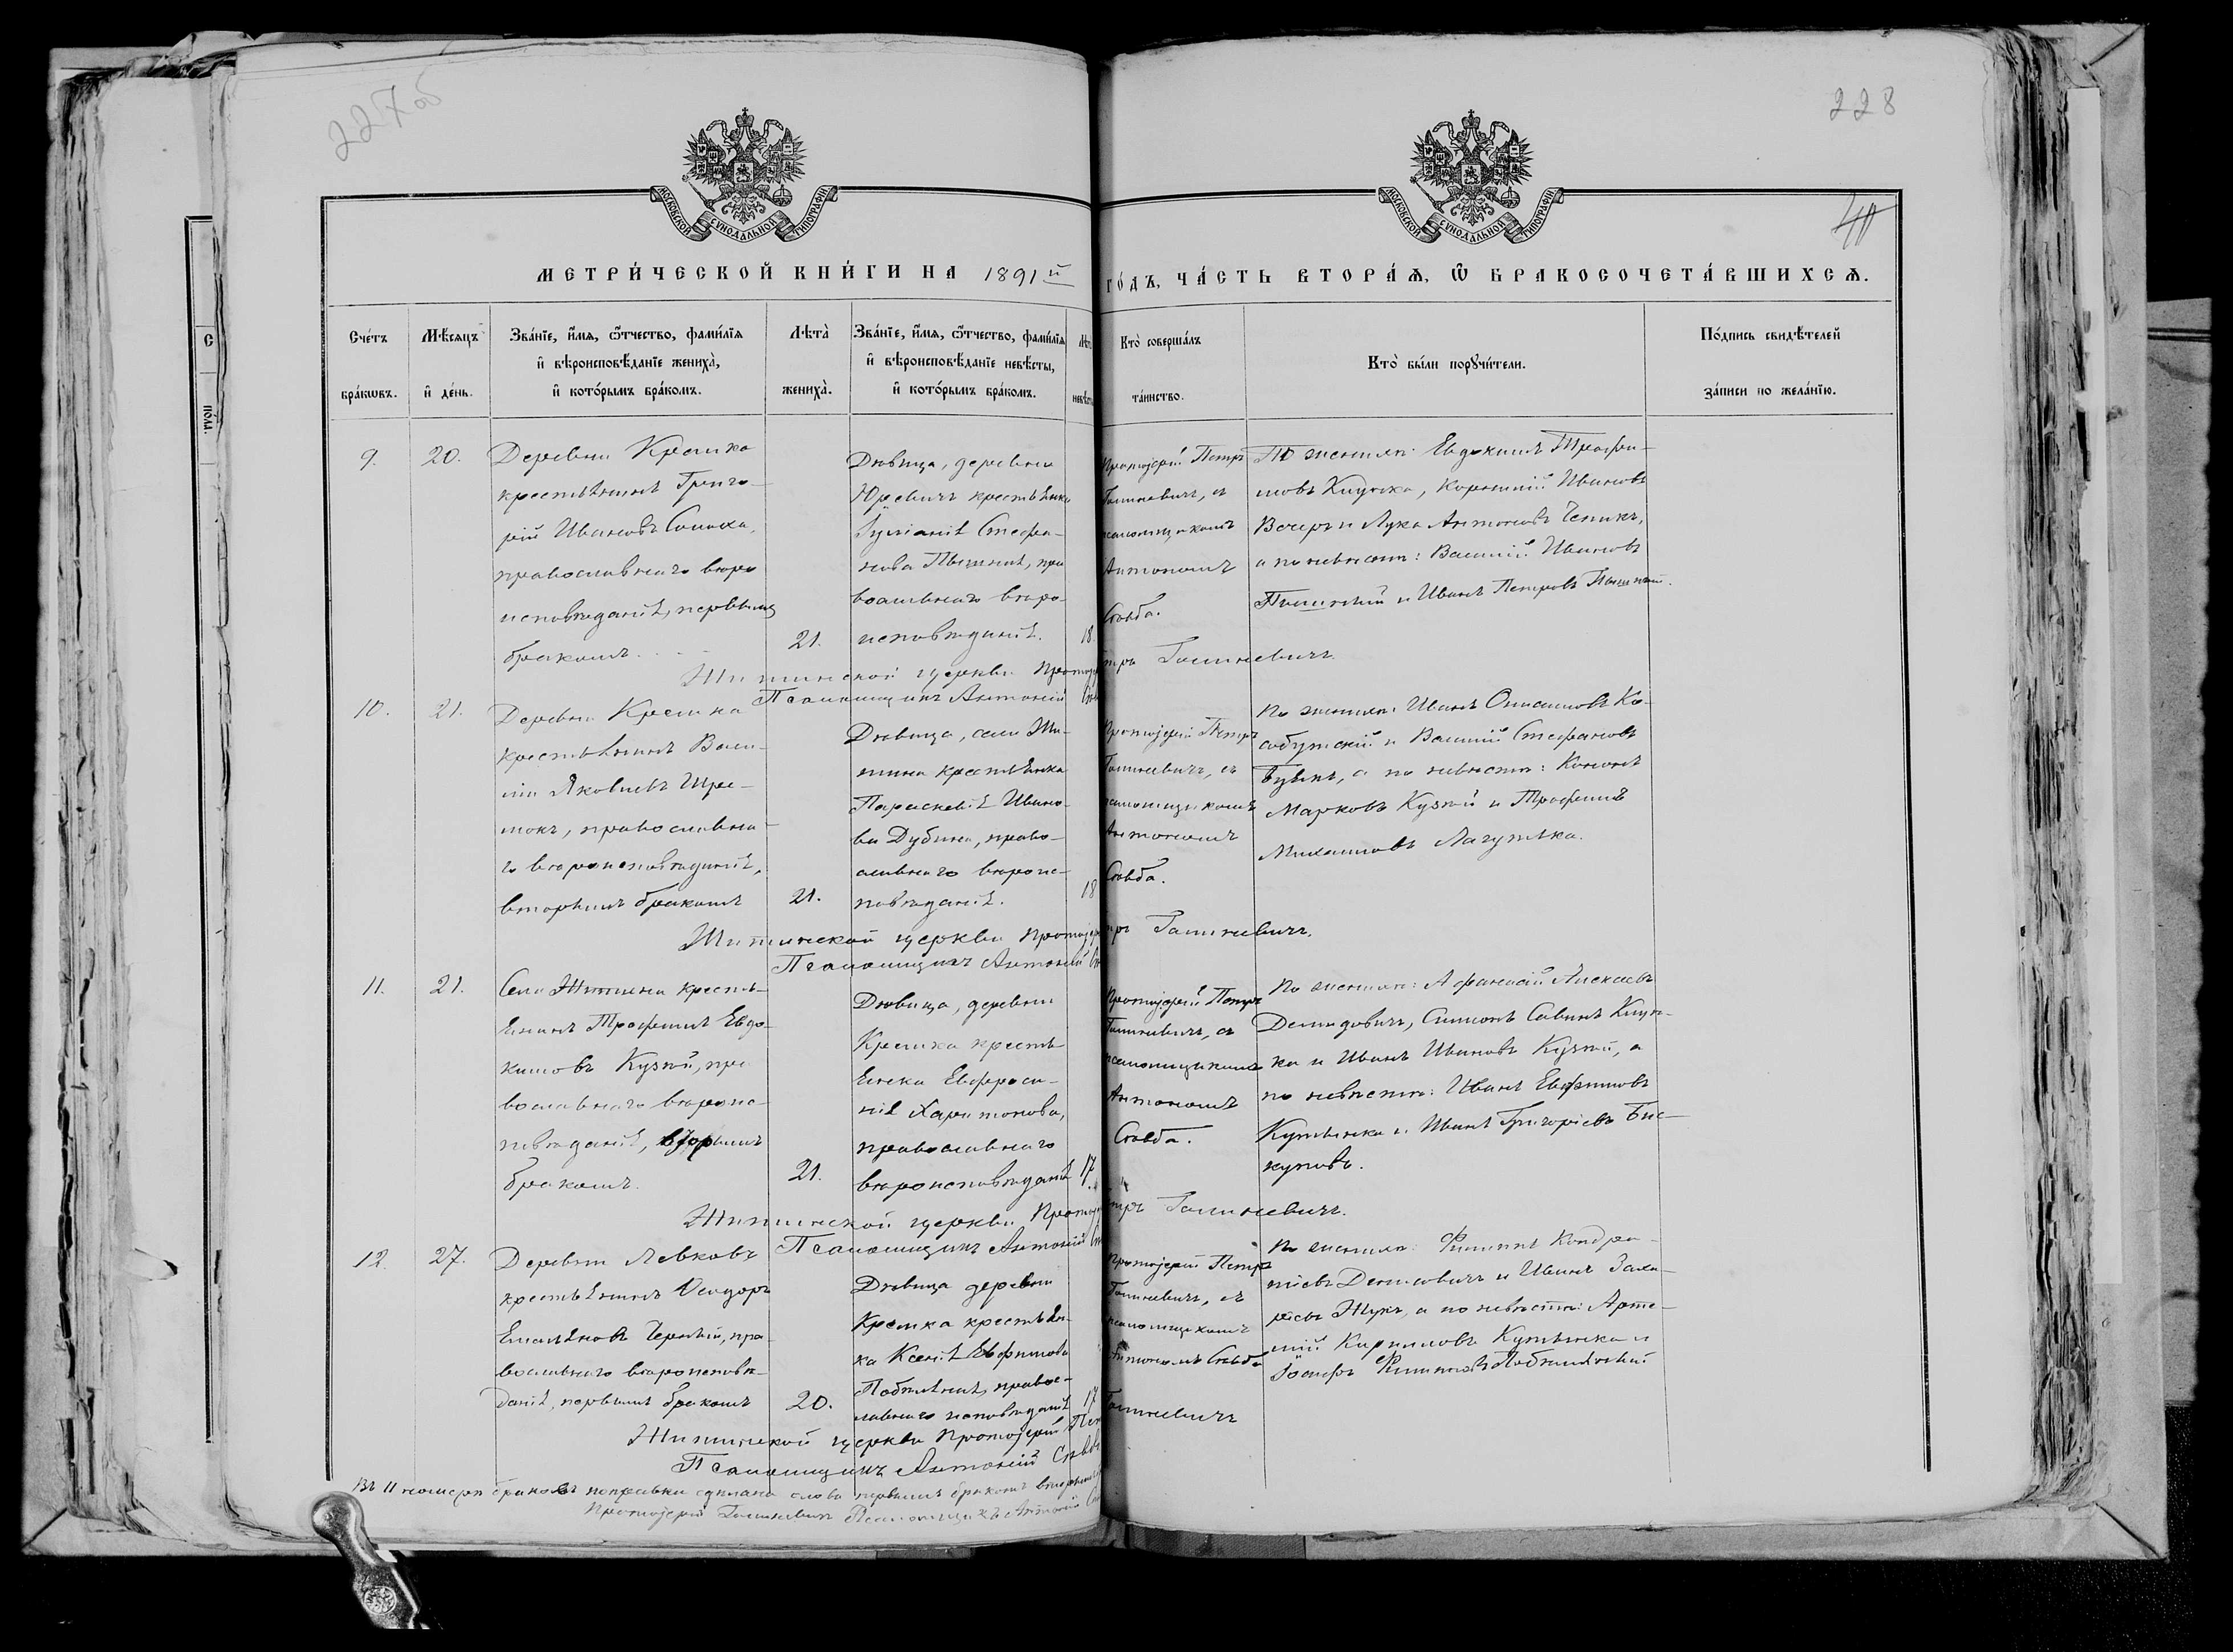 227об
228
40
МОСКОВСКОЙ СУНОДАЛЬНОЙ ТИПОГРАФІИ
МОСКОВСКОЙ СУНОДАЛЬНОЙ ТИПОГРАФІИ
МЕТРИ́ЧЕСКОЙ КНИ́ГИ НА 1891й
ГО́ДЪ, ЧА́СТЬ ВТОРА́Ѧ, Ѿ БРАКОСОЧЕТА́ВШИХСѦ.
Сче́тъ бра́кѡвъ.
Мѣ́сѧцъ и҆ де́нь.
Зва́нїе, и҆́мѧ, ѻ҆́тчество, фами́лїѧ
и҆ вѣроисповѣ́данїе жениха̀,
и҆ кото́рымъ бра́комъ.
Лѣ́та̀ жениха̀.
Зва́нїе, и҆́мѧ, ѻ҆́тчество, фами́лїѧ
и҆ вѣроисповѣ́данїе невѣ́сты,
и҆ кото́рымъ бра́комъ.
Кто̀ соверша́лъ
та́инство.
Кто̀ бы́ли порꙋчи́тели.
По́дпись свидѣ́телей
за́писи по жела́нїю.
9.
20.
Деревни Кремка
крестьянинъ Григо-
рій Ивановъ
православнаго вѣро
исповѣданія, первымъ
бракомъ.
21.
Дѣвица, деревни
Юревичъ крестьянка
Іуліанія Стефа-
нова
вославнаго вѣро-
исповѣданія.
18.
Протоіерей Петръ
Галиневичъ, съ
псаломщикомъ
Антономъ
Совба.
По женихѣ: Евдокимъ Трофи-
мовъ Кицука, Корнилій Ивановъ
Вечеръ и Лука Антоновъ Чепикъ,
а по невѣстѣ: Василій Ивановъ
и Иванъ Петровъ
Житинской церкви Протоіерей Петръ Галиневичъ.
Псаломщикъ Антоній
10.
21.
Деревни Кремка
крестьянинъ Васи-
лій Яковлевъ
православна-
го вѣроисповѣданія,
вторымъ бракомъ
21.
Дѣвица, села Жи-
тина крестьянка
Параскевія Ивано-
ва Дубина, право-
славнаго вѣроис-
повѣданія.
18
Протоіерей Петръ
Галиневичъ, съ
псаломщикомъ
Антономъ
Совба.
По женихѣ: Иванъ
и Василій Стефановъ
а по невѣстѣ: Кононъ
Марковъ Кузмій и Трофимъ
Михаиловъ Лагутька.
Житинской церкви Протоіерей Петръ Галиневичъ.
Псаломщикъ Антоній
11.
21.
Села Житина кресть-
янинъ Трофимъ Евдо-
кимовъ Кузмій, пра-
вославнаго вѣроис-
повѣданія, вторымъ
бракомъ.
21.
Дѣвица, деревни
Кремка кресть-
янка Евфроси-
нія Харитонова,
православнаго
вѣроисповѣданія
17
Протоіерей Петръ
Галиневичъ, съ
псаломщикомъ
Антономъ
Совба.
По женихѣ: Афанасій Алексѣевъ
Демидовичъ, Симонъ Савинъ Кицу-
ка и Иванъ Ивановъ Кузмій, а
по невѣстѣ: Иванъ Евфимовъ
и Иванъ Григоріевъ
Житинской церкви Протоіерей Петръ Галиневичъ.
Псаломщикъ Антоній
12.
27.
Деревни Левковъ
крестьянинъ Ѳеодоръ
Емельяновъ пра-
вославнаго вѣроисповѣ-
данія, первымъ бракомъ
20.
Дѣвица деревни
Кремка крестьян-
ка Ксенія Евфимова
правос-
лавнаго исповѣданія
17
Протоіерей Петръ
Галиневичъ, съ
псаломщикомъ
Антономъ Совба
По женихѣ: Филиппъ Кондра-
тіевъ Денисовичъ и Иванъ Заха-
ріевъ Жукъ, а по невѣстѣ: Арте-
мій Кирилловъ и
Іосифъ Филиповъ
Житинской церкви Протоіерей Петръ Галиневичъ
Псаломщикъ Антоній
Въ 11 номерѣ браковъ поправка сдѣлана слова первымъ бракомъ вторымъ
Протоіерей Галиневичъ Псаломщикъ Антоній